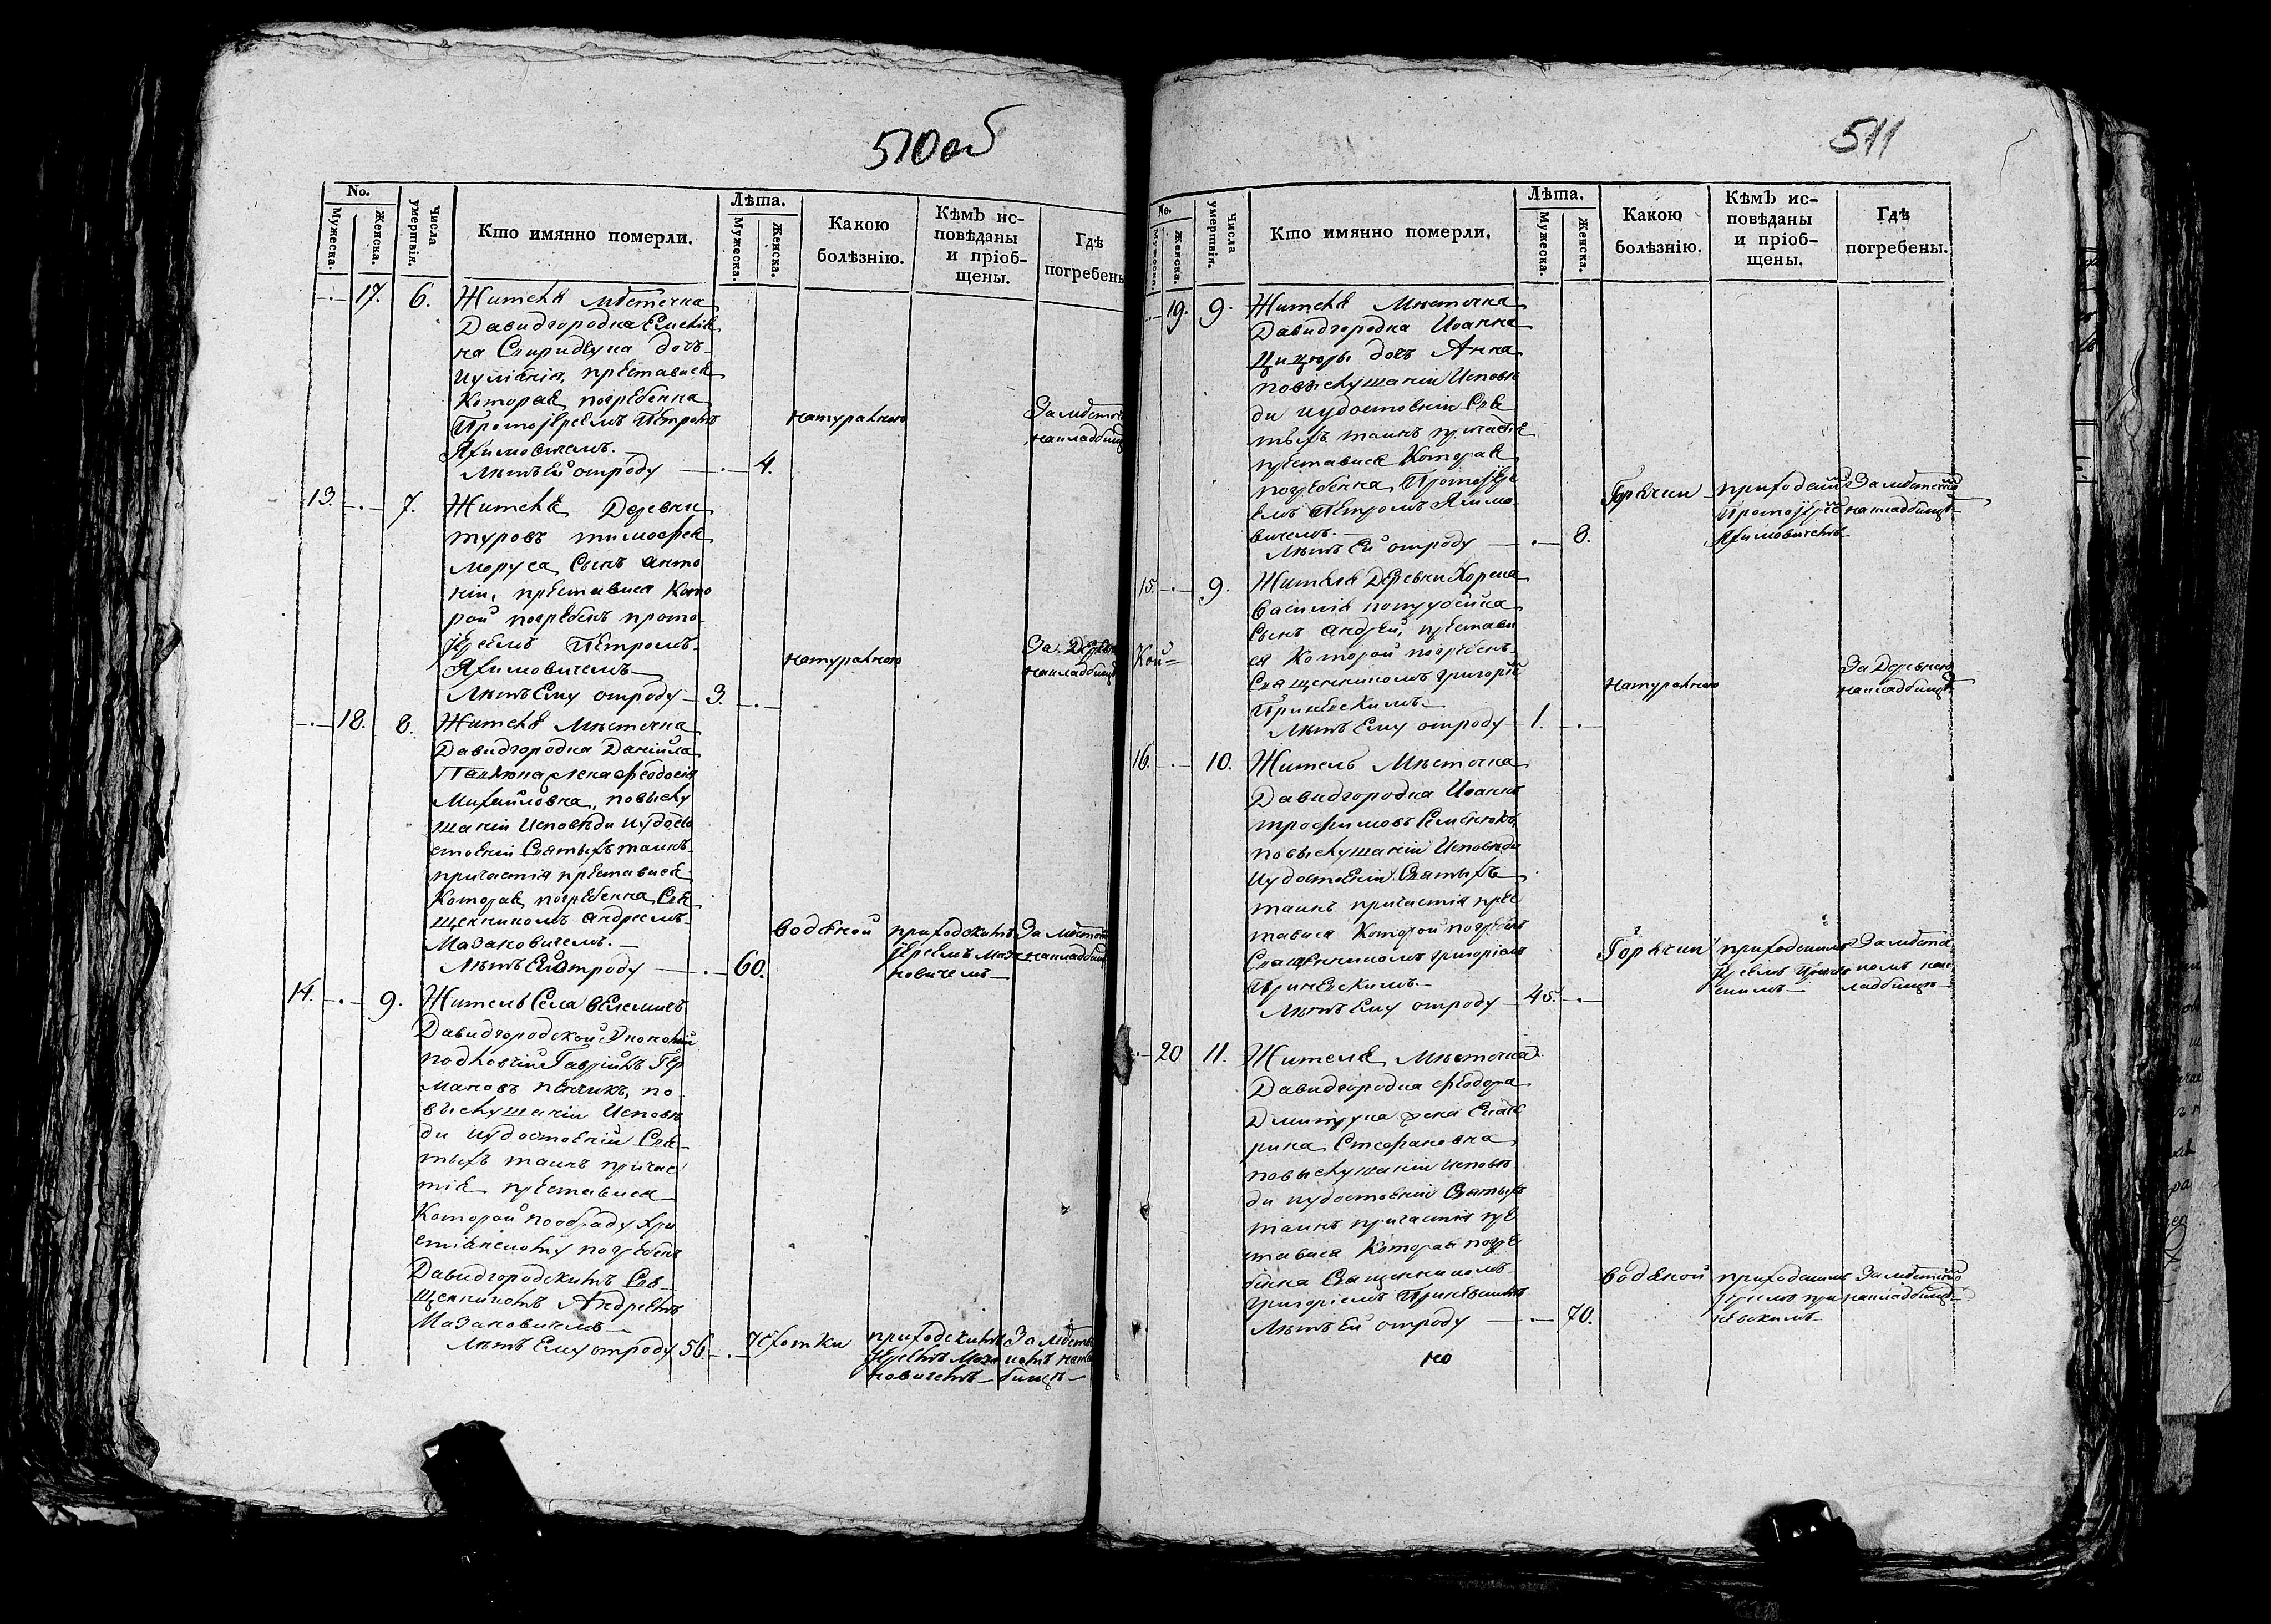 510 об
No.
Мужеска.
Женска.
Числа умертвія.
Кто имянно померли.
Лѣта.
Мужеска.
Женска.
Какою болѣзнію.
Кѣмъ исповѣданы и пріобщены.
Гдѣ погребены
17. 6. Жителя мѣстечка
Давидгородка
на дочь
преставися
Которая погребенна
Протоіереемъ Петромъ
Якимовичемъ.
натурально
За мѣсте
на кладбищ
Лѣтъ Ей отроду 4.
13. 7. Жителя Деревни
Туровъ тимофея
моруса Сынъ анто
ній, преставися Кото
рой погребенъ прото
іереемъ Петромъ
Якимовичемъ
натурально
За Дерев
на кладбищ
Лѣтъ Ему отроду 3.
18. 8. Жителя Мѣстечка
Давидгородка Даніила
жена феодосія
Михайловна, повыслу
шаніи Исповѣди иудо
стоеніи Святыхъ таинъ
причастія преставися
Которая погребенна Свя
щенникомъ андреемъ
Мазановичемъ.
водяной
приходскимъ
Іереемъ Маза
новичемъ
За мѣсте
на кладбищ
Лѣтъ Ей отроду 60.
14. 9. Житель Села
Давидгородской Економіи
подловчій Гавріилъ Гер
мановъ пенчикъ, по
выслушаніи Исповѣ
ди иудостоеніи Свя
тыхъ таинъ причас
тія преставися
Которой пообряду Хри
стіянскому погребенъ
Давидгородскимъ Свя
щенникомъ Андреемъ
Мазановичемъ
Лѣтъ Ему отроду 56.
чехотки
приходскимъ
Іереемъ Маза
новичемъ
За мѣстеч
комъ на кла
бищѣ
511
No.
Мужеска.
Женска.
Числа умертвія.
Кто имянно померли.
Лѣта.
Мужеска.
Женска.
Какою болѣзнію.
Кѣмъ исповѣданы и пріобщены.
Гдѣ погребены.
19. 9. Жителя Мѣстечка
Давидгородка Иоанна
Цицюры дочь Анна
повыслушаніи Исповѣ
ди иудостоеніи Свя
тыхъ таинъ причастія
преставися Которая
погребенна Протоіере
емъ Петромъ Якимо
вичемъ.
Горячки
приходскимъ
Протоіерее
Якимовичемъ
За мѣстечко
на кладбищѣ
Лѣтъ Ей отроду 8.
15. 9. Жителя Деревни Хорска
Василія
Сынъ андрей, престави
ся Которой погребенъ
Кой=
Священникомъ григоріе
Приневскимъ
натурально
За Деревнею
на кладбищѣ
Лѣтъ Ему отроду 1.
16. 10. Житель Мѣстечка
Давидгородка Иоаннъ
трофимовъ Семенюкъ,
повыслушаніи Исповѣди
иудостоеніи Святыхъ
таинъ причастія прес
тавися Которой погребенъ
Священникомъ григоріемъ
Приневскимъ.
Горячки
приходскимъ
Іереемъ Принев
скимъ
За мѣстеч
комъ на к
ладбищѣ
Лѣтъ Ему отроду 45.
20 11. Жителя Мѣстечка
Давидгородка феодора
Дмитрука жена Екате
рина Стефановна
повыслушаніи исповѣ
ди иудостоеніи Святыхъ
таинъ причастія пре
ставися Которая погре
бенна Священникомъ
григоріемъ Приневскимъ
водяной
приходскимъ
Іереемъ при
невскимъ
За мѣстечко
на кладбищѣ
Лѣтъ Ей отроду 70.
но